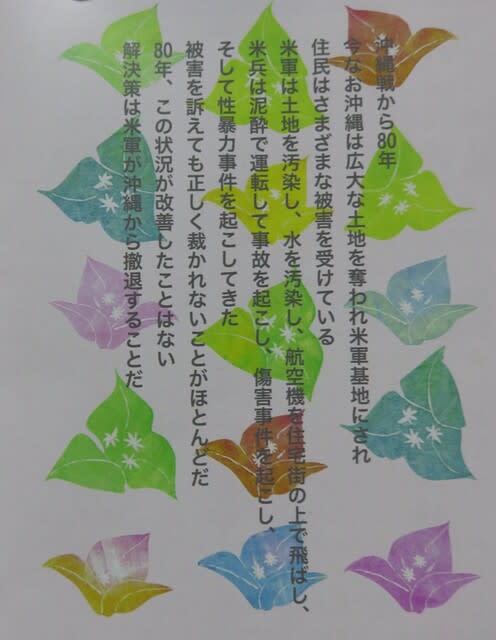 沖縄戦から80年
今なお沖縄は広大な土地を奪われ米軍基地にされ
住民はさまざまな被害を受けている
米軍は土地を汚染し、水を汚染し、航空機を住宅街の上で飛ばし、
米兵は泥酔で運転して事故を起こし、傷害事件を起こし、
そして性暴力事件を起こしてきた
被害を訴えても正しく裁かれないことがほとんどだ
80年、この状況が改善したことはない
解決策は米軍が沖縄から撤退することだ